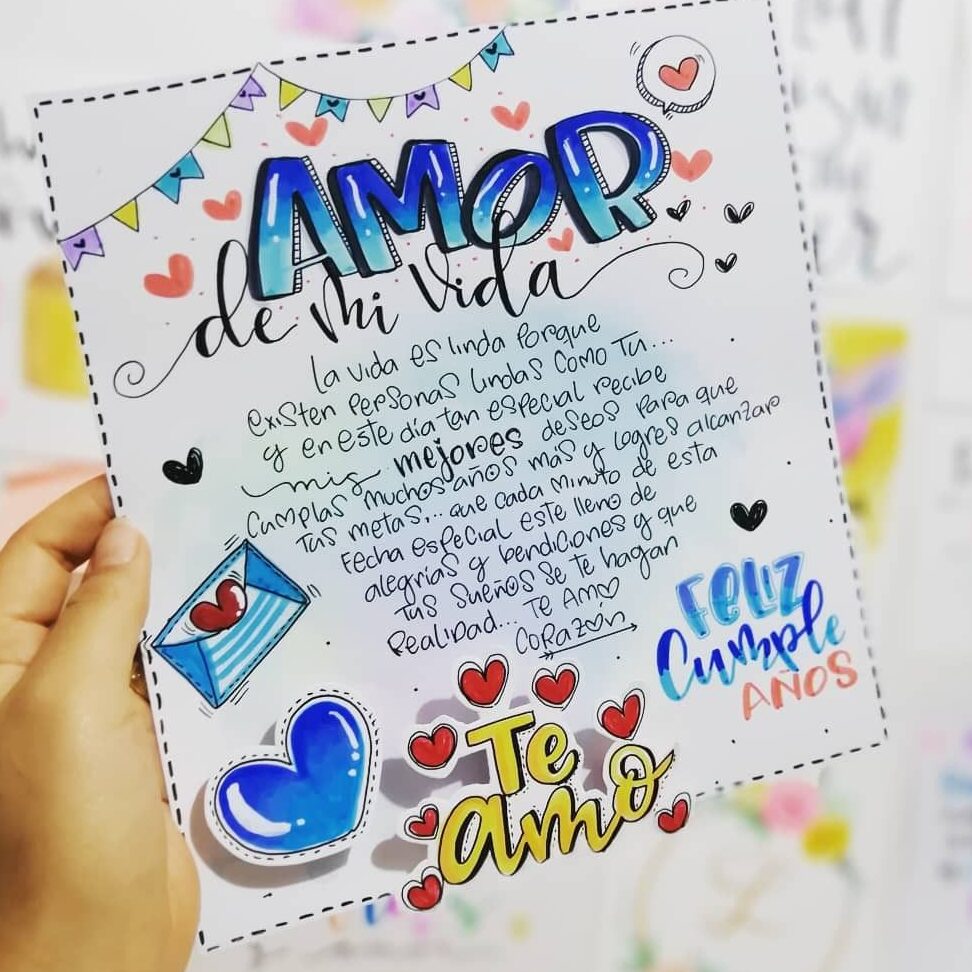 AMOR
de mi vida
La vida es linda porque
existen personas lindas como tu...
y en este día tan especial recibe
mis mejores deseos para que
cumplas muchos años más y logres alcanzar
tus metas... que cada minuto de esta
fecha especial este lleno de
alegrías y bendiciones y que
tus sueños se te hagan
realidad... Te amo
corazón
FELIZ
Cumple
AÑOS
Te
amo